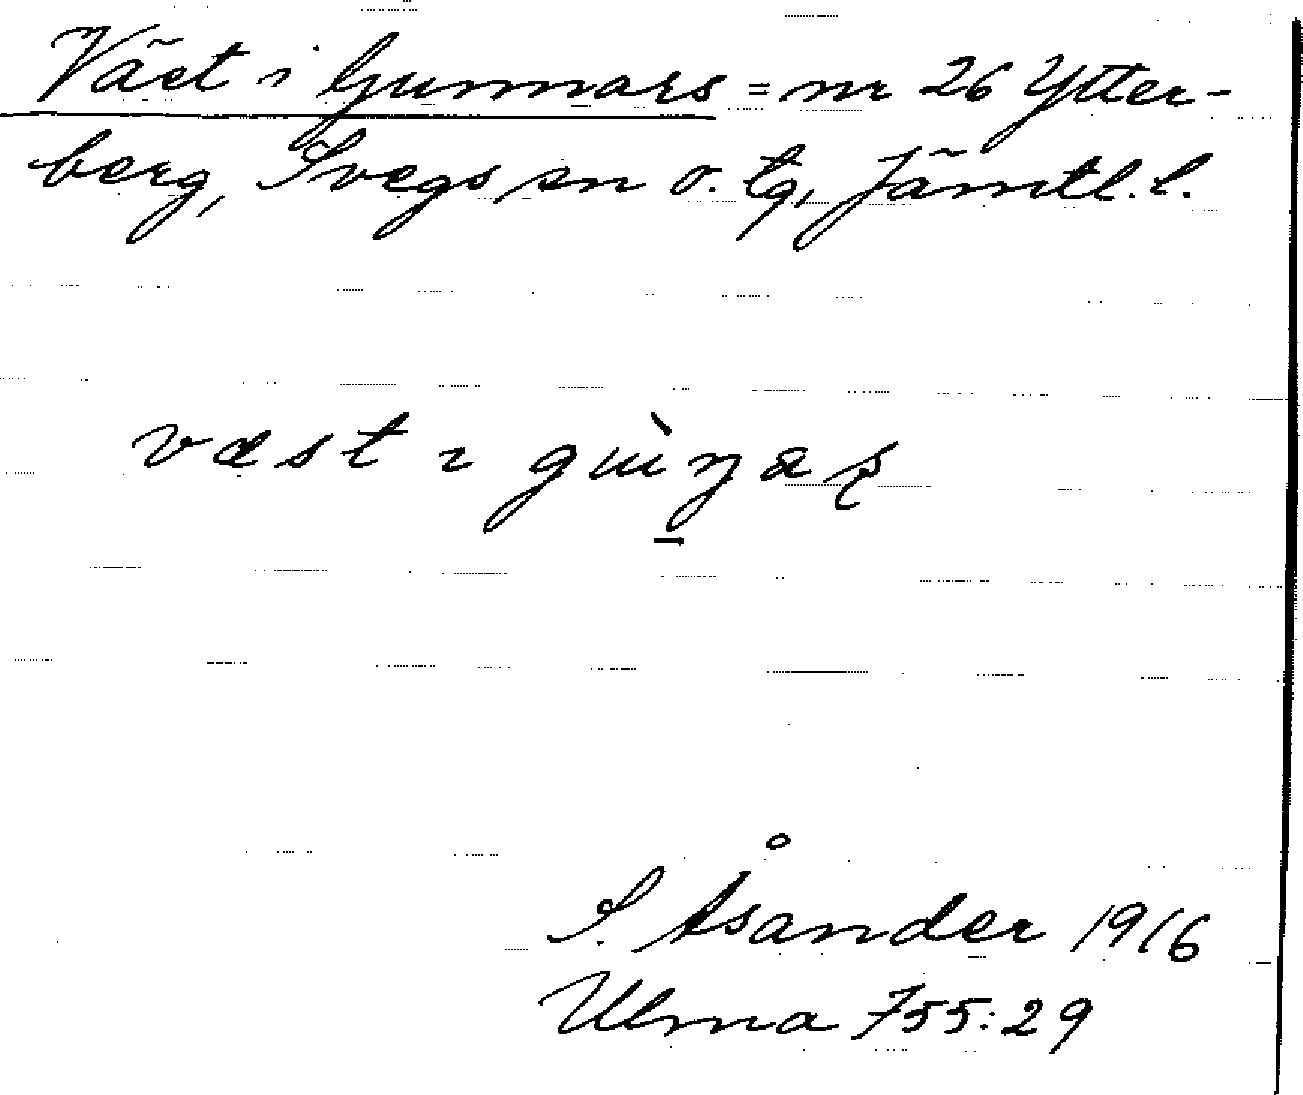 Väst i Gunnars = nr 26 Ytter-
berg, Svegs sn o. tg, Jämtl. l.
væst ɩ gɯ̀ŋaʂ
S. Åsander 1916
Ulma 755:29